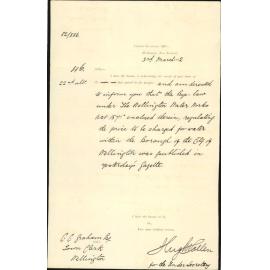 82/886
3rd March 2
Sir,
I have the honour to acknowledge the receipt of your letter of
22nd ult. and am directed
to inform you that the bye-law
under The Wellington Water Works
Act 1871 enclosed therein, regulating
the price to be charged for water
within the Borough of the City of
Wellington was published in
yesterday's Gazette
I have the honour to be,
Sir,
Your most obedient servant,
C. C. Graham Esq
Town Clerk
Wellington
for the Under Secretary